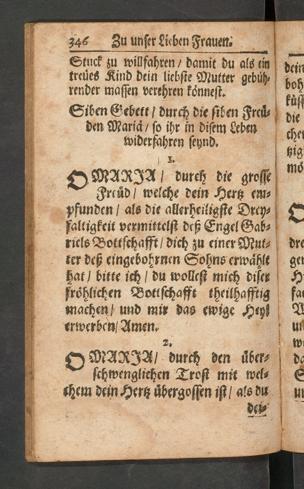 346 Zu unser Lieben Frauen.
Stuck zu willfahren / damit du als ein
treües Kind dein liebste Mutter gebüh-
render massen verehren könnest.
Siben Gebett / durch die siben Freü-
den Mariä / so ihr in disem Leben
widerfahren seynd.
1.
O MARJA / durch die grosse
Freüd / welche dein Hertz em-
pfunden / als die allerheiligste Drey-
faltigkeit vermittelst deß Engel Gab-
riels Bottschafft / dich zu einer Mut-
ter deß eingebohrnen Sohns erwählt
hat / bitte ich / du wollest mich diser
fröhlichen Bottschafft theilhafftig
machen / und mir das ewige Heyl
erwerben / Amen.
2.
O MARJA / durch den über-
schwenglichen Trost mit wel-
chem dein Hertz übergossen ist / als du
dei-